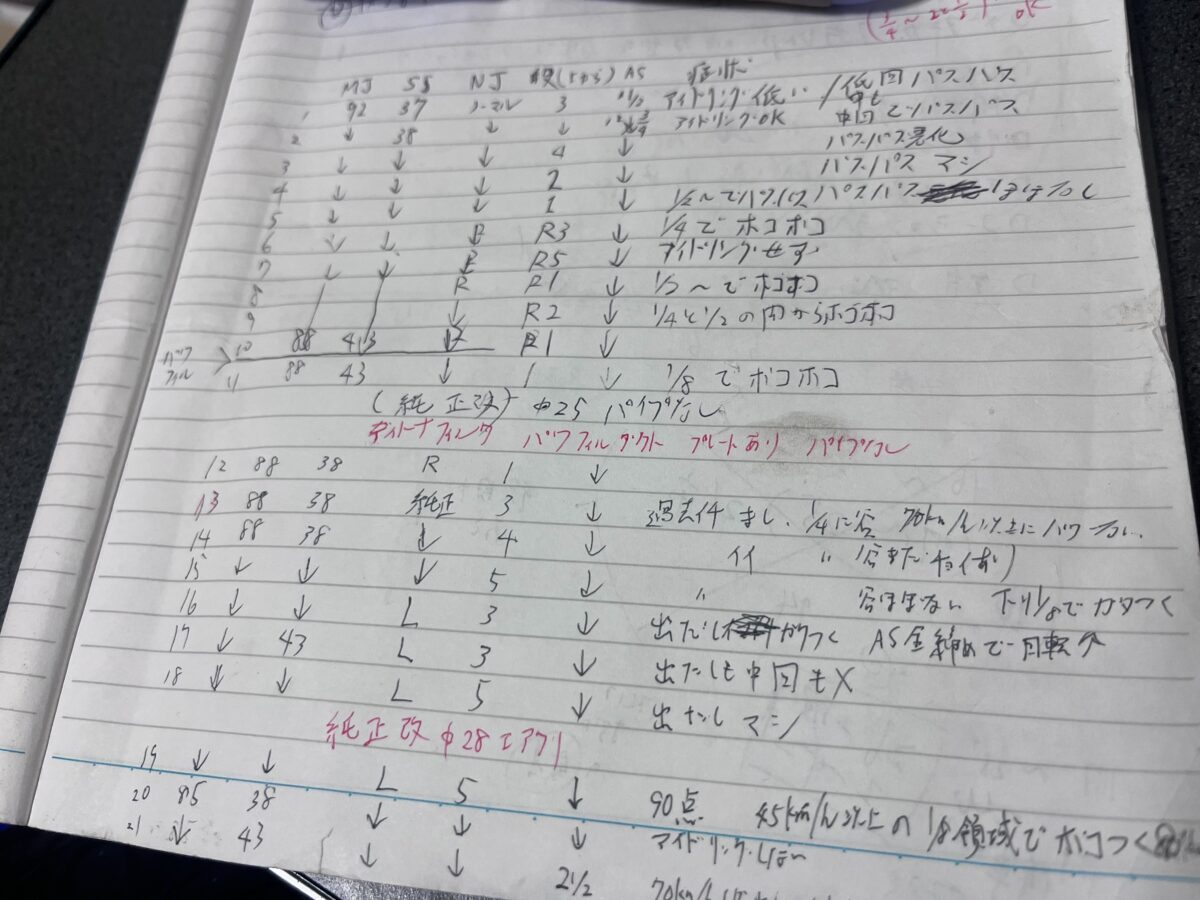 OK
MJ SJ NJ 段(5から) AS 症状
1 92 37 ノーマル 3 アイドリング低い / 低回パスパス
2 ↓ 38 ↓ ↓ アイドリングOK 中回でパスパス
3 ↓ ↓ ↓ 4 ↓ パスパス悪化
4 ↓ ↓ ↓ 2 ↓ パスパス マシ
5 ↓ ↓ ↓ 1 ↓ 1/2〜でパスパス パスパス ほぼなし
6 ↓ ↓ R R3 ↓ 1/4でボコボコ
7 ↓ ↓ R R5 ↓ アイドリングせず
8 R R1 ↓ 1/2〜でボコボコ
9 ↓ R2 ↓ 1/4と1/2の間からボコボコ
10 88 43 R1 ↓
パワフィル 11 88 43 ↓ 1 ↓ 1/8でボコボコ
(純正改) φ25 パイプなし
デイトナフィルタ パワフィルダクト プレートあり パイプなし
12 88 38 R 1 ↓
13 88 38 純正 3 ↓ 過去イチ まし、1/4に谷 70km/h以上にパワーなし、
14 88 38 ↓ 4 ↓ 〃 谷まだ
15 ↓ ↓ ↓ 5 ↓ 〃 谷ほぼない 下り1/8でガタつく
16 ↓ ↓ L 3 ↓ 出だし ガタつく AS全締めで一回転
17 ↓ 43 L 3 ↓ 出だしも中回も×
18 ↓ ↓ L 5 ↓ 出だし マシ
純正改 φ28 エアクリ
19 ↓ ↓ L 5 ↓ 90点 45km/h以上の1/8領域でボコつく
20 85 38 ↓ ↓ ↓ アイドリング
21 ↓ 43 ↓ ↓ 2 1/2 70km/h